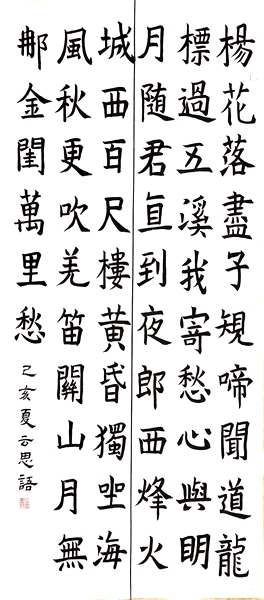 楊花落盡子規啼聞道龍
標過五溪我寄愁心與明
月随君直到夜郎西烽火
城西百尺樓黃昏獨坐海
風秋更吹羌笛關山月無
那金閨萬里愁
己亥夏云思語